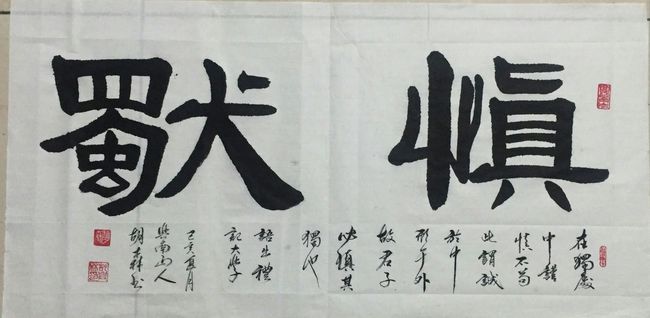 慎獨
在獨處
中謹
慎不苟
此謂誠
於中
形于外
故君子
必慎其
獨也
語出禮
記大學
己亥月
南山人
胡書